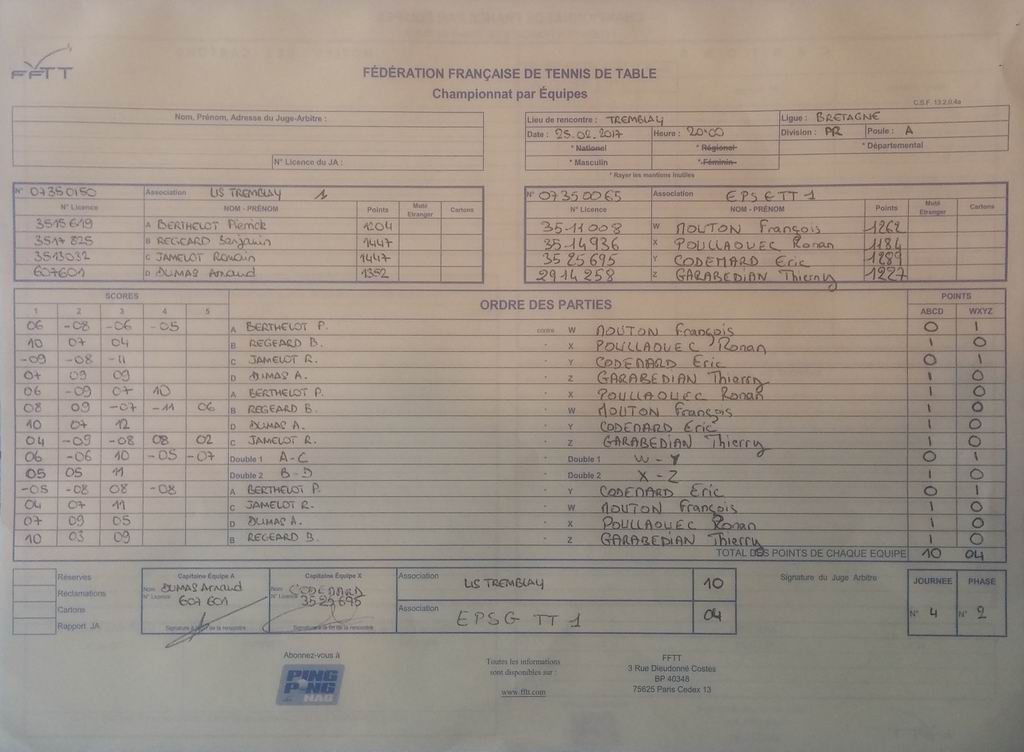 FFTT
FÉDÉRATION FRANÇAISE DE TENNIS DE TABLE
Championnat par Équipes
C.S.F. 13.2.0.4a
Nom, Prénom, Adresse du Juge-Arbitre :
N° Licence du JA :
Lieu de rencontre : TREMBLAY Ligue : BRETAGNE
Date : 25.02.2017 Heure : 20h00 Division : PR Poule : A
* National * Régional * Départemental
* Masculin * Féminin
* Rayer les mentions inutiles
N° 07350150 Association LIS TREMBLAY 1
N° Licence NOM - PRÉNOM Points Muté Etranger Cartons
3515619 A BERTHELOT Pierrick 1204
3517825 B REGEARD Benjamin 1447
3513032 C JAMELOT Romain 1447
607601 D DUMAS Arnaud 1352
N° 07350065 Association EPSGTT 1
N° Licence NOM - PRÉNOM Points Muté Etranger Cartons
35-11008 W MOUTON François 1262
35-14936 X POULLAOUEC Ronan 1184
35 25695 Y CODEMARD Eric 1289
2914258 Z GARABEDIAN Thierry 1227
SCORES ORDRE DES PARTIES POINTS
1 2 3 4 5 ABCD WXYZ
06 -08 -06 -05 A BERTHELOT P. contre W MOUTON François 0 1
10 07 04 B REGEARD B. - X POULLAOUEC Ronan 1 0
-09 -08 -11 C JAMELOT R. - Y CODEMARD Eric 0 1
07 09 09 D DUMAS A. - Z GARABEDIAN Thierry 1 0
06 -09 07 10 A BERTHELOT P. - X POULLAOUEC Ronan 1 0
08 09 -07 -11 06 B REGEARD B. - W MOUTON François 1 0
10 07 12 D DUMAS A. - Y CODEMARD Eric 1 0
04 -09 -08 08 02 C JAMELOT R. - Z GARABEDIAN Thierry 1 0
06 -06 10 -05 -07 Double 1 A-C - Double 1 W-Y 0 1
05 05 11 Double 2 B-D - Double 2 X-Z 1 0
-05 -08 08 -08 A BERTHELOT P. - Y CODEMARD Eric 0 1
04 07 11 C JAMELOT R. - W MOUTON François 1 0
07 09 05 D DUMAS A. - X POULLAOUEC Ronan 1 0
10 03 09 B REGEARD B. - Z GARABEDIAN Thierry 1 0
TOTAL DES POINTS DE CHAQUE EQUIPE 10 04
Réserves
Réclamations
Cartons
Rapport JA
Capitaine Équipe A
Nom DUMAS Arnaud
N° Licence 607 601
Signature à la fin de la rencontre
Capitaine Équipe X
Nom CODEMARD
N° Licence 3525695
Signature à la fin de la rencontre
Association LIS TREMBLAY 10
Association EPSG TT 1 04
Signature du Juge Arbitre
JOURNEE PHASE
N° 4 N° 2
Abonnez-vous à
PING PONG MAG
Toutes les informations
sont disponibles sur :
www.fftt.com
FFTT
3 Rue Dieudonné Costes
BP 40348
75625 Paris Cedex 13